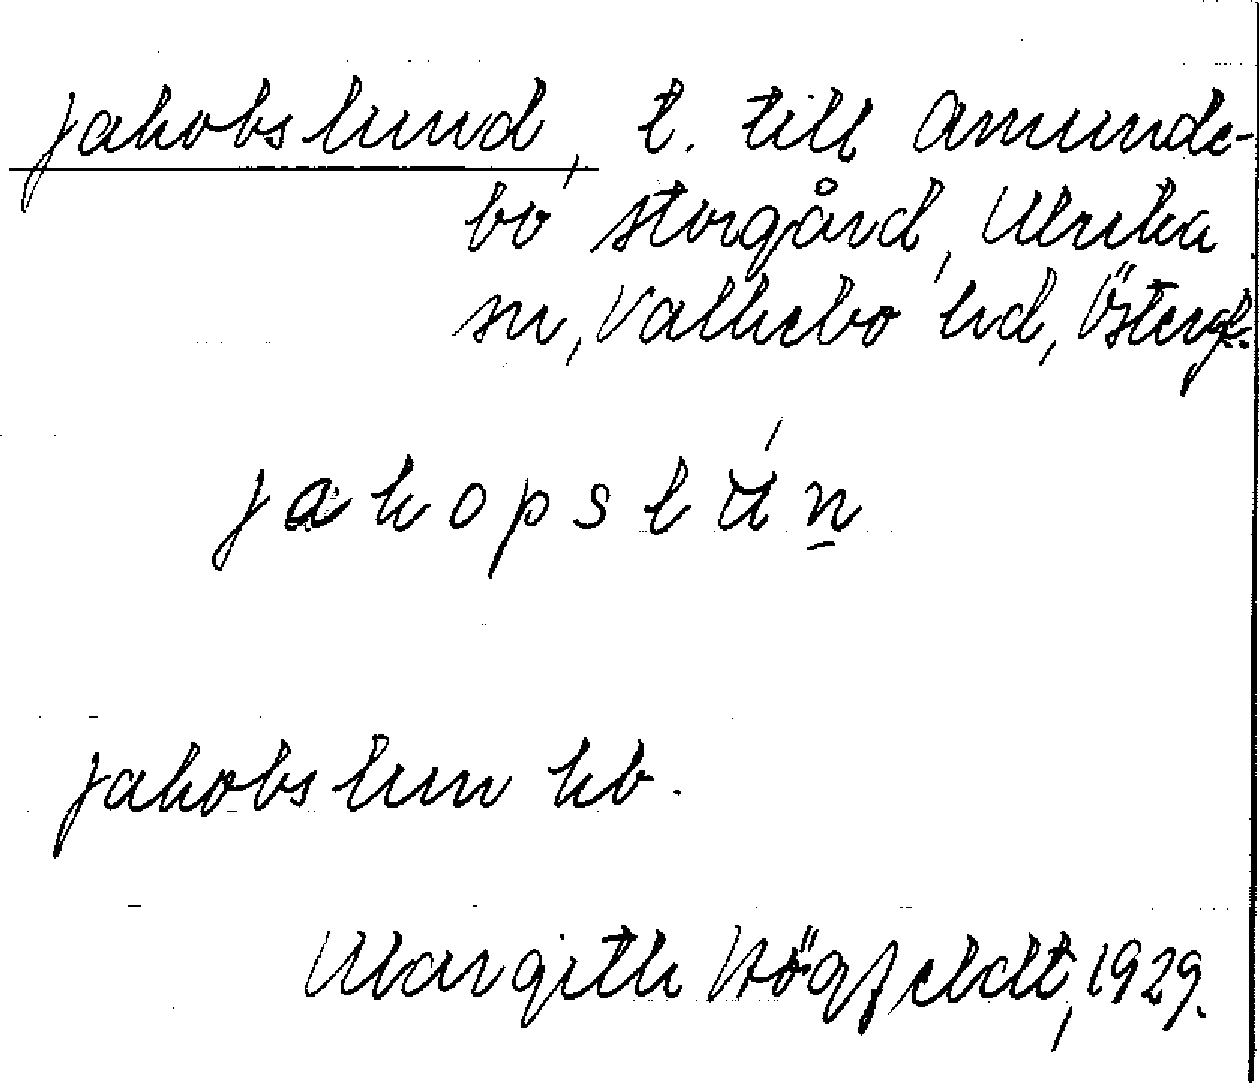 Jakobslund, t. till Amunde-
bo storgård, Ulrika
sn, Valkebo hd, Östergl.
jakopslún̲
Jakobslun kb.
Margith Högfeldt, 1929.